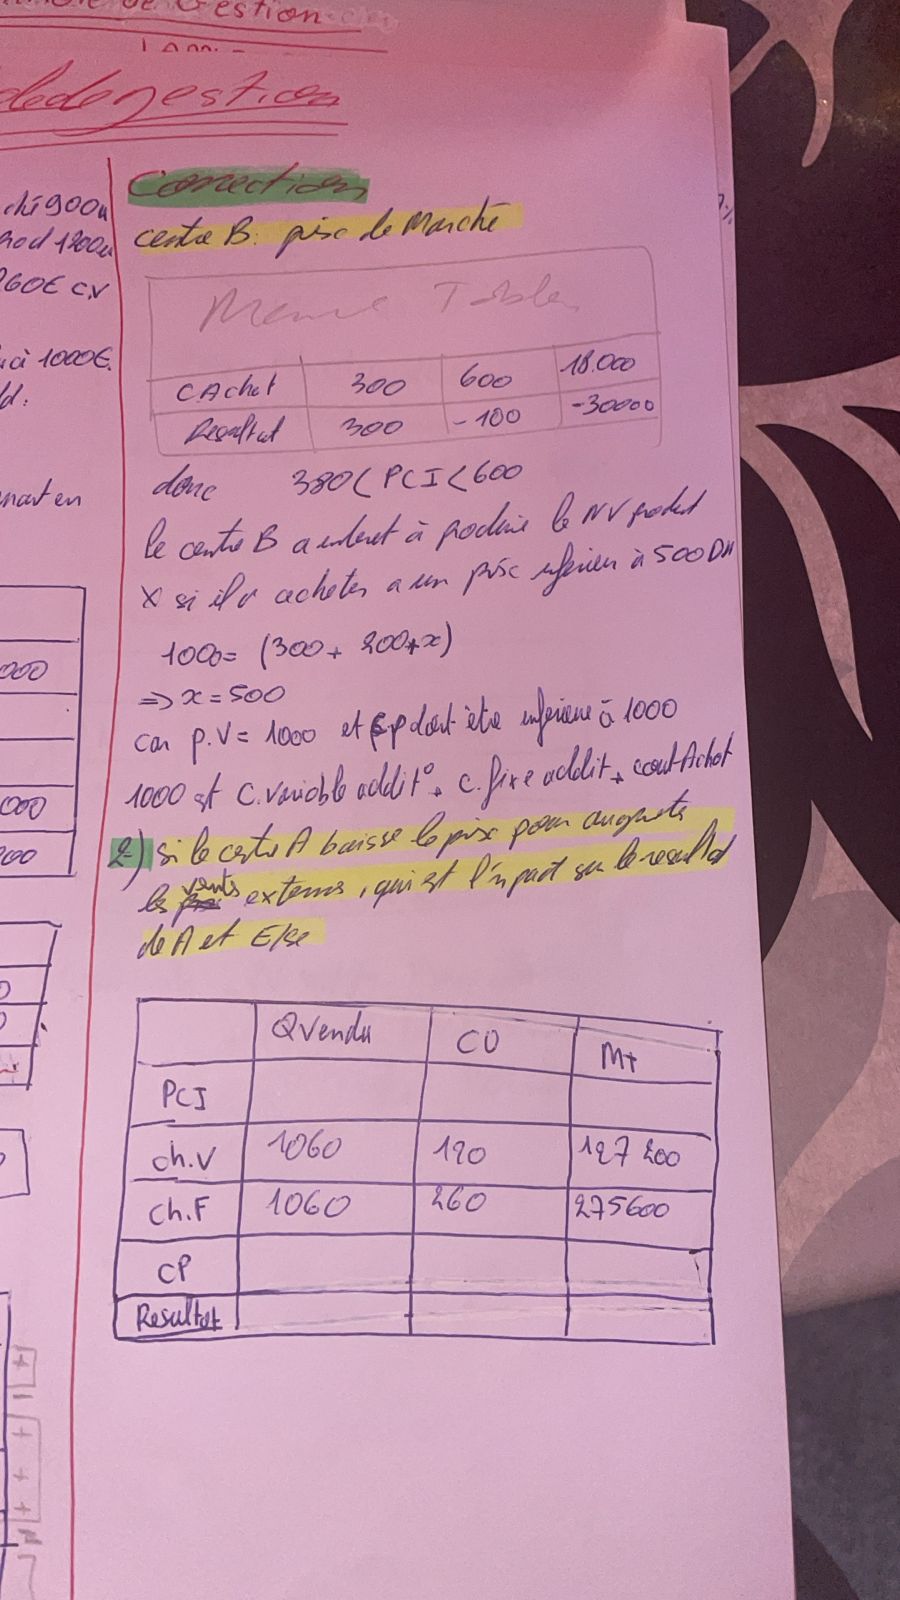 de Gestion
de gestion
Correction
ché 900u
Prod 1200u
260€ C.V
à 1000€.
centre B: prix de Marché
Meme Tableau
CAchat 300 600 18.000
Resultat 300 -100 -30000
donc 380< PCI <600
le centre B a interet à produire le NV produit
X si il achetes a un prix inferieur à 500DH
1000= (300+ 200+x)
=> x=500
car p.V= 1000 et doit être inferieure à 1000
1000 C.variable addit° + C.fixe addit + cout Achat
2-) si le centre A baisse le prix pour
les vents externes, qui est l'impact sur le resultat
de A et E/se
000
000
QVendu CU Mt
PCI
ch.V 1060 120 127 200
Ch.F 1060 260 275600
CP
Resultat